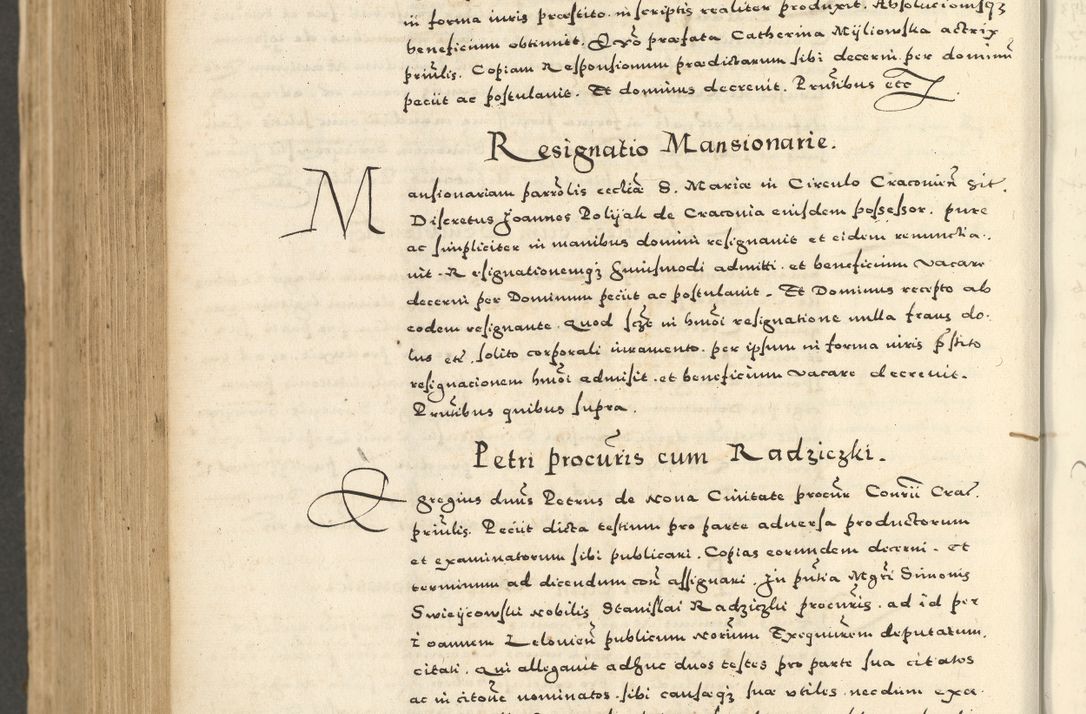 in forma iuris præstito. in scriptis realiter produxit. Absolucionisqʒ
beneficium obtinuit. Et ex⁰ præfata Catherina Myliowska actrix
priñlis. Copiam Responsionum prædictarum sibi decerni per dominũ
peciit ac postulauit. Et dominus decreuit. Prñtibus etc̃
Resignatio Mansionarie.
Mansionariam parrõlis ecclĩæ S. Mariæ in Circulo Cracovieñ sit.
Discretus Joannes Polijak de Cracouia eiusdem possessor. pure
ac simpliciter in manibus domini resignauit et eidem renunctia-
uit. Resignationemqʒ huiusmodi admitti. et beneficium vacare
decerni per Dominum peciit ac postulauit. Et Dominus recepto ab
eodem resignante. Quod scʒ̃t in hmõi resignatione nulla fraus do-
lus etc̃. solito corporali iuramento. per ipsum in forma iuris p̃stito
resignacionem hmõi admisit. et beneficium vacare decreuit.
Prñtibus quibus supra.
Petri procuris cum Radziczki.
Egregius dnũs Petrus de Noua Ciuitate procur̃ Conrĩi Crac̃.
priñlis. Peciit dicta testium pro parte aduersa productorum
et examinatorum sibi publicari. Copias eorundem decerni. et
terminum ad dicendum con̄ assignari. In pñtia Mgrĩ Simonis
Swieijcowski nobilis Stanislai Radziczki procuris. ad id per
Ioannem Zelovieñ publicum Norũm Exequũrem deputatum.
citati. Qui allegauit adhuc duos testes pro parte sua citatos
ac in citoñe nominatos. sibi causæqʒ suæ vtiles. necdum exa-